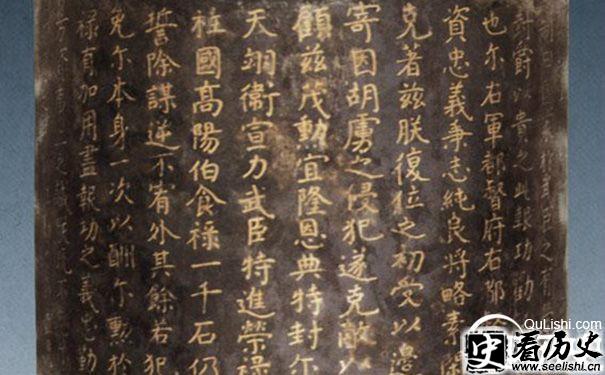 爵以貴之此報功勸
也尔右軍都督府右都
資忠義秉志純良將略素
克著兹朕復位之初受以邊
寄因胡虜之侵犯遂克敵
顧兹茂勳宜隆恩典特封尔
天翊衛宣力武臣特進榮禄
柱國高陽伯食禄一千石仍
誓除謀逆不宥外其餘若犯
免尔本身一次以酬尔勳於
禄宜加用盡報功之義
QuLishi.com
看历史
www.seelishi.cn